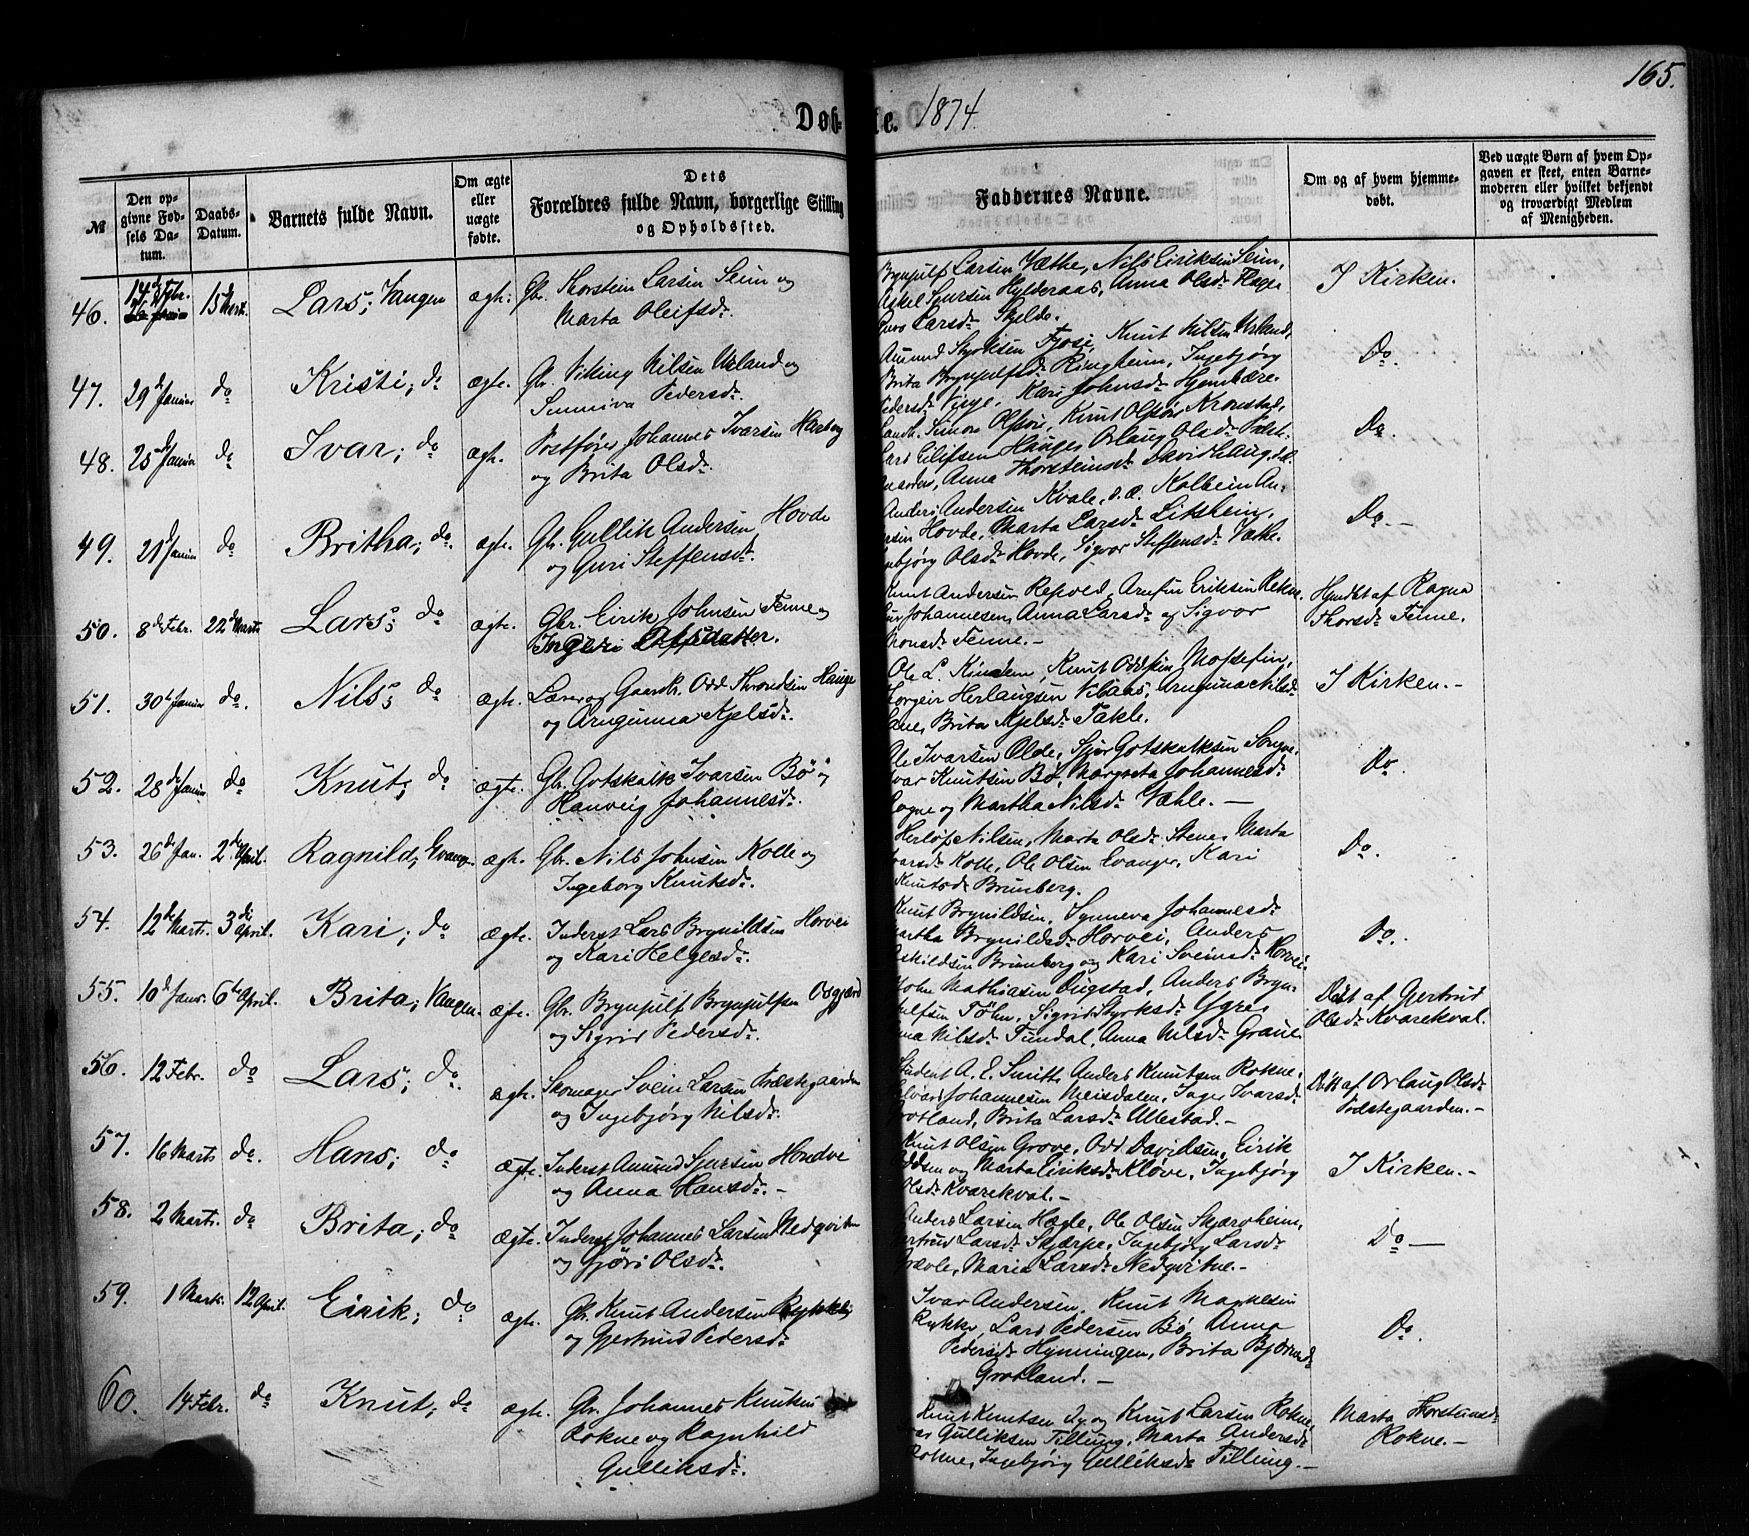 165.
Døbte. 1874.
№
Den opgivne Fødsels Datum.
Daabs-Datum.
Barnets fulde Navn.
Om ægte eller uægte fødte.
Dets Forældres fulde Navn, borgerlige Stilling og Opholdssted.
Faddernes Navne.
Om og af hvem hjemmedøbt.
Ved uægte Børn af hvem Opgaven er skeet, enten Barnemoderen eller hvilket bekjendt og troværdigt Medlem af Menigheden.
46. 14 Febr. 15 Marts. Lars; Vangen ægte: Gbr. Thorstein Larsen Seim og
Marta Oleifsdr.
Brynjulf Larsen Væthe, Nils Eiriksen Seim,
Askel Sjursen Hylderaas, Anna Olsdr
Larsdr Skjelde.
I Kirken.
47. 29 Januar do Kristi; do ægte. Gbr. Viking Nilsen Urland og
Sunniva Pedersdr.
Amund Styrksen Fjose, Knut Nilsen Urland,
Brita Brynjulfsdr Ringheim, Ingebjørg
Pedersdr Gjerje, Kari Johnsdr
Do.
48. 25 Januar do Ivar; do ægte. Postfører Johannes Ivarsen
og Brita Olsdr.
Simon Olsen, Knut Olsen Kronstad,
Lars Eilifsen Hauge, Orlaug Olsdr
Anna Thorsteinsdr Davidhaug
Do.
49. 21 Januar do Britha; do. ægte. Gbr. Gullik Andersen Hovde
og Guri Steffensdr.
Anders Andersen Kvale, Kolbein An-
Hovde, Marta Larsdr Litsheim,
Olsdr Hovde, Sigvor Steffensdr Væthe.
Do.-
50. 8de Febr. 22d Marts Lars; do ægte. Gbr. Eirik Johnsen Tenne og
Ingeri Olfsdatter.
Knut Andersen Repved, Arnfin Eriksen Rekve,
Johannesen, Anna Larsdr og Sigvor
Monsdr Tenne.-
Hjmdbt af Ragna
Thorsdr Tenne.
51. 30te Januar do. Nils; do ægte. Lærer og Gaardbr. Odd Throndsen Hauge
og Arngunna Kjelsdr.
Ole L. Kindem, Knut Oddsen Mossefin,
Torgeir Herlaugsen Klaas, Arnguna Nilsdr
Brita Kjelsdr Takle.
I Kirken.-
52. 28de Januar do Knut; do ægte. Gbr. Gotskalk Ivarsen Bø og
Hanveig Johannesdr.
Ole Ivarsen Olde, Sjur Gotskalksen Sogne,
Ivar Knutsen Bø, Margreta Johannesdr
Sogne og Martha Nilsdr Væhle.-
Do.
53. 26de Jan. 2de April. Ragnild; Evanger ægte. Gbr. Nils Johnsen Kolle og
Ingeborg Knutsdr.
Herlof Nilsen, Marta Olsdr Stene, Marta
Ivarsdr Kolle, Ole Olsen Evanger, Kari
Knutsdr Brunberg.
Do.
54. 12de Marts. 3die April. Kari; do. ægte. Inderst Lars Brynildsen Horvei
og Kari Helgesdr.
Knut Brynildsen, Synneva Johannesdr
Martha Brynildsdr Horvei, Anders
Brunberg og Kari Sveinsdr Horvei.
Do.
55. 10de Janr. 6te April. Brita; Vangen. ægte. Gbr. Brynjulf Brynjulfsen
og Sigrid Pedersdr.
John Mathiasen Dugstad, Anders Bryn-
julfsen Tøhn, Sigrid Styrksdr Ygre,
Nilsdr Tundal, Anna Nilsdr Graue
Døbt af Gjertrud
Olsdr Kvarekval.
56. 12 Febr. do Lars; do. ægte. Skomager Svein Larsen Præstegaarden
og Ingebjørg Nilsdr.
Student A. E. Smitt, Anders Knutsen Rokne,
Johannesen Meisdalen, Inger Ivarsdr
Grotland, Brita Larsdr Ullestad.-
Døbt af Orlaug Olsdr
Præstegaarden.-
57. 16 Marts do. Hans; do ægte. Inderst Amund Sjursen Hondve
og Anna Hansdr.-
Knut Olsen Grove, Odd Davidsen, Eirik
Oddsen og Marta Eiriksdr Kløve, Ingebjørg
Olsdr Kvarekval.-
I Kirken.-
58. 2 Marts. do Brita; do ægte. Inderst Johannes Larsen Nedqvitne
og Gjøri Olsdr.
Anders Larsen Hægle, Ole Olsen Skjærvheim,
Gjertrud Larsdr Skjærpe, Ingebjørg Larsdr
Maria Larsdr Nedqvitne.-
Do-
59. 1 Marts. 12 April. Eirik; do ægte. Gbr. Knut Andersen Rykke
og Gjertrud Pedersdr
Ivar Andersen, Knut Magnesen
Rykke, Lars Pedersen Bø, Anna
Pedersdr Hynningen, Brita Bjørnsdr
Grotland.-
Do.
60. 14 Febr. do Knut; do ægte. Gbr. Johannes Knutsen
Rokne og Ragnhild
Gulliksdr.
Knut Knutsen og Knut Larsen Rokne,
Gulliksen Tillung, Marta Andersdr
Rokne, Ingebjørg Gulliksdr Tillung.-
Marta Thorsteinsdr
Rokne.-